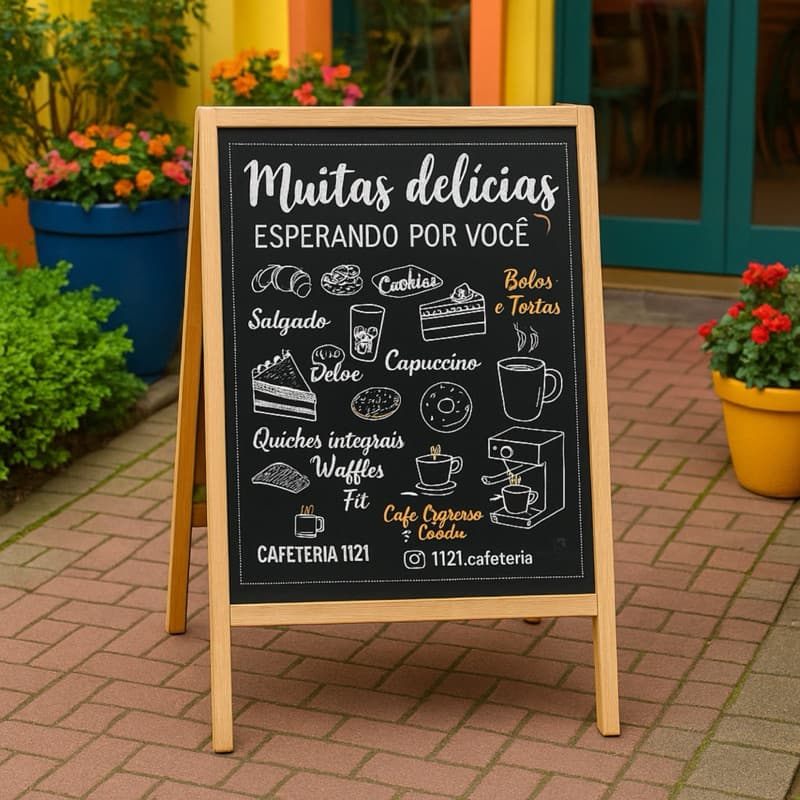 Muitas delícias
ESPERANDO POR VOCÊ
Cookise
Bolos
e Tortas
Salgado
Deloe
Capuccino
Quiches integrais
Waffles
Fit
Cafe Crgrerso
Coodu
CAFETERIA 1121
1121.cafeteria